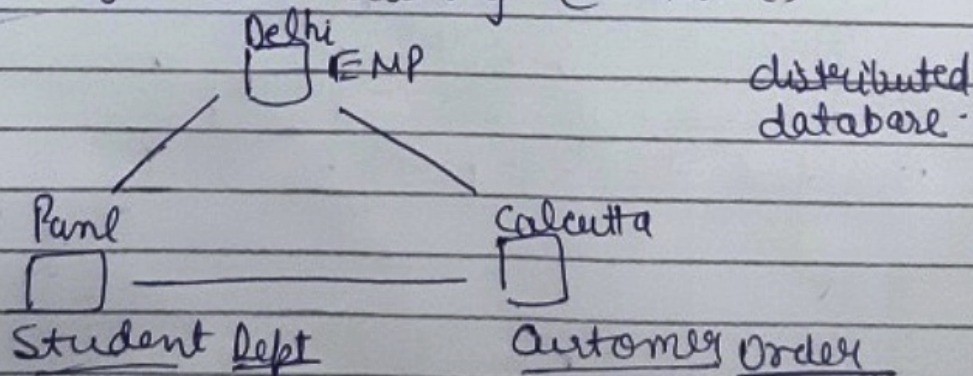 Delhi
EMP
distributed
database.
Panl
Calcutta
Student Dept
Customer Order